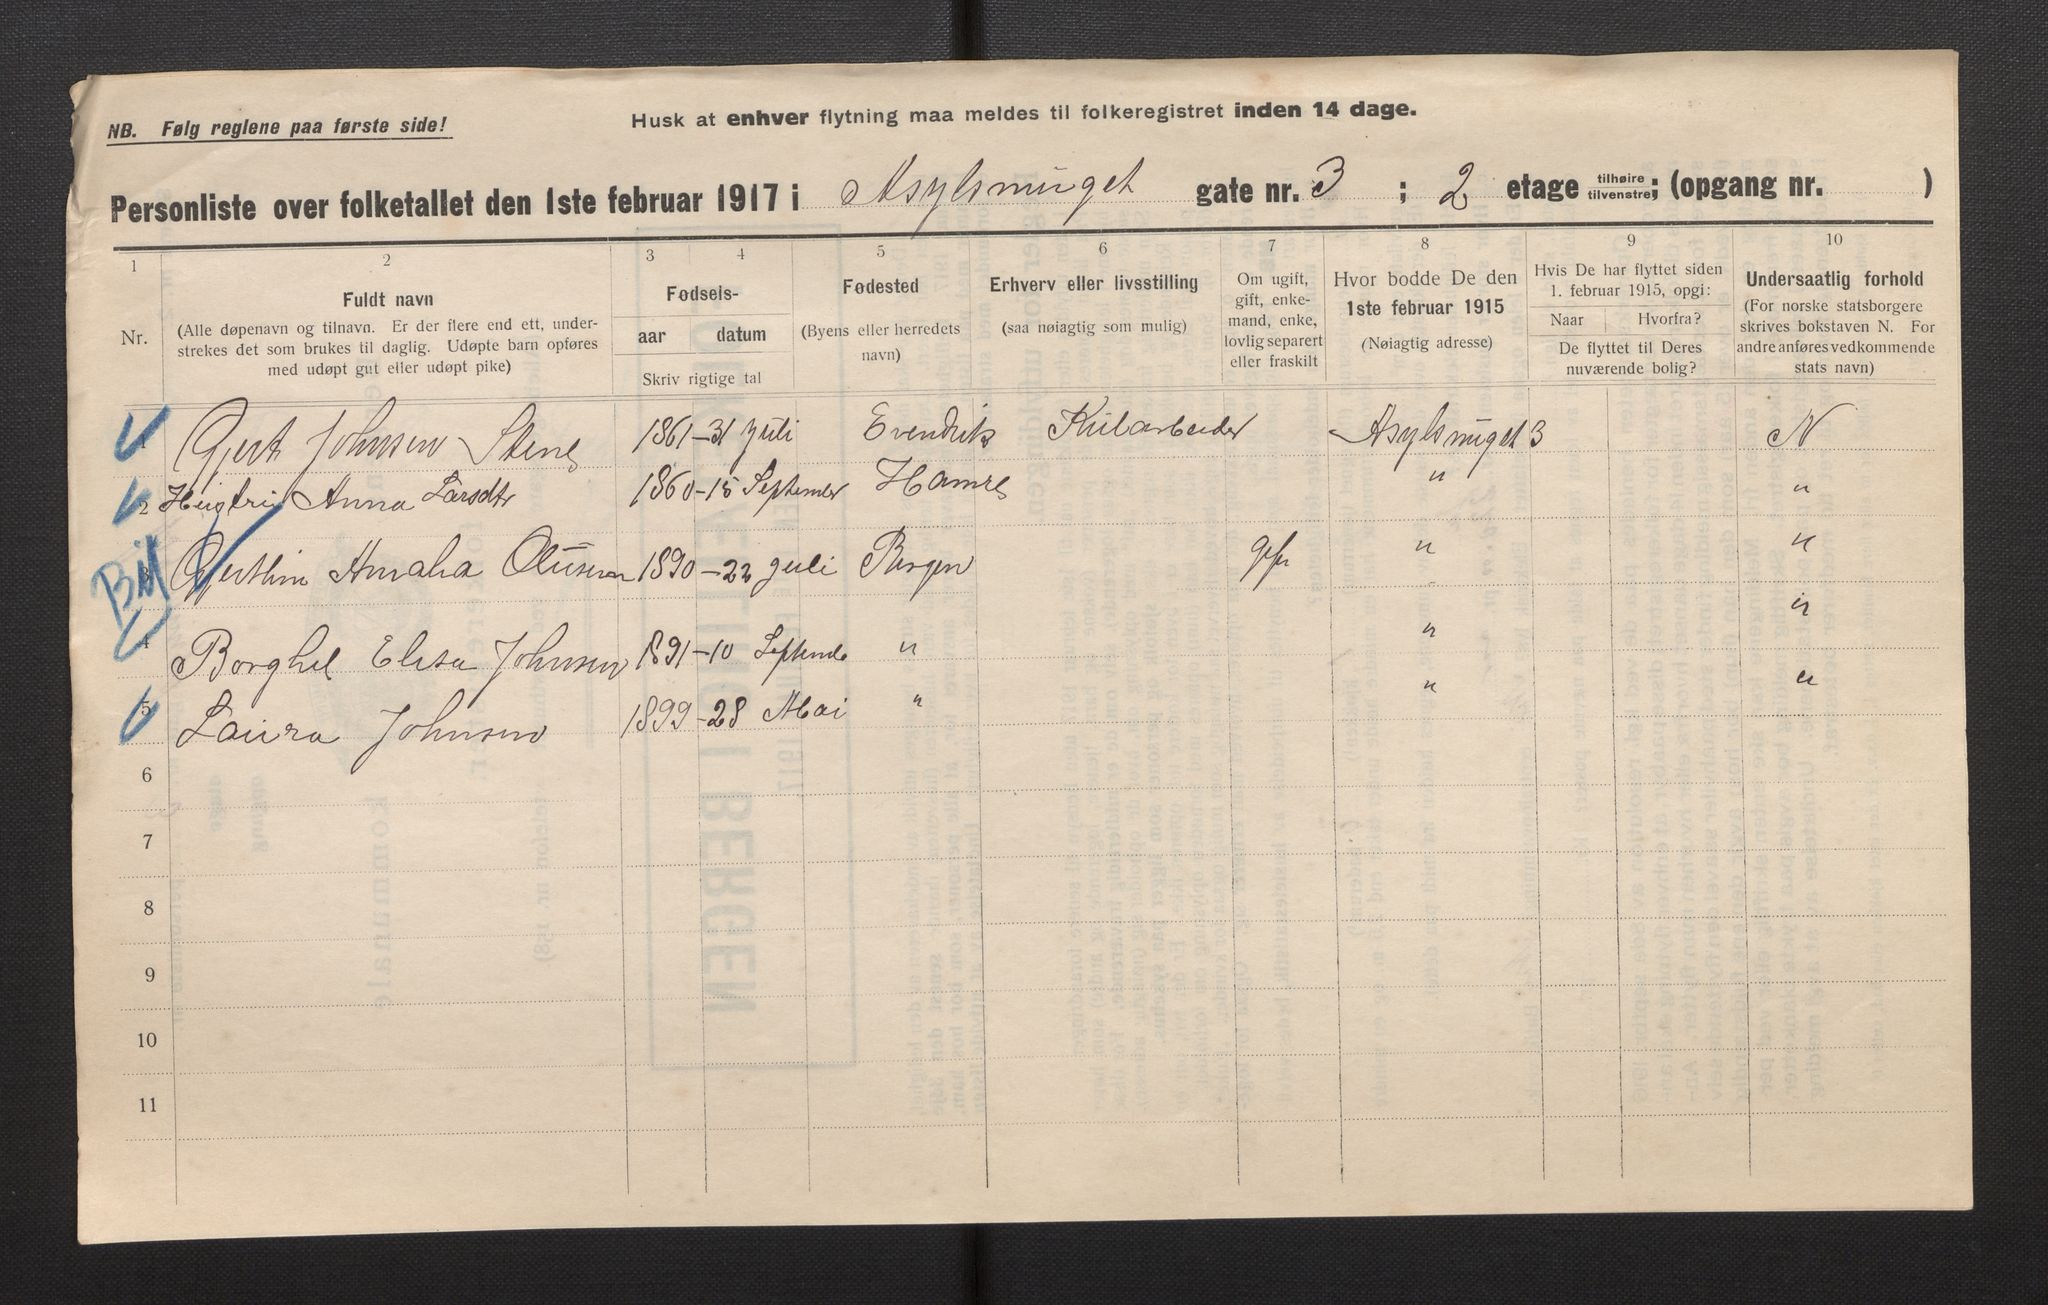 NB. Følg reglene paa første side!
Husk at enhver flytning maa meldes til folkeregistret inden 14 dage.
Personliste over folketallet den 1ste februar 1917 i Asylsmuget gate nr. 3 ; 2 etage tilhøire tilvenstre; (opgang nr. )
1 2 3 4 5 6 7 8 9 10
Nr.
Fuldt navn
(Alle døpenavn og tilnavn. Er der flere end ett, under-
strekes det som brukes til daglig. Udøpte barn opføres
med udøpt gut eller udøpt pike)
Fødsels-
aar datum
Skriv rigtige tal
Fødested
(Byens eller herredets
navn)
Erhverv eller livsstilling
(saa nøiagtig som mulig)
Om ugift,
gift, enke-
mand, enke,
lovlig separert
eller fraskilt
Hvor bodde De den
1ste februar 1915
(Nøiagtig adresse)
Hvis De har flyttet siden
1. februar 1915, opgi:
Naar Hvorfra?
De flyttet til Deres
nuværende bolig?
Undersaatlig forhold
(For norske statsborgere
skrives bokstaven N. For
andre anføres vedkommende
stats navn)
1 Gjert Johnsen Stene 1861 - 31 Juli Evendvik Kularbeider Asylsmuget 3 N
2 Anna Larsdtr 1860 - 15 September Hamre " "
3 Amalia Olussen 1890 - 22 Juli Bergen " "
4 Borghil Elisa Johnsen 1891 - 10 Septembe " " "
5 Laura Johnsen 1899 - 28 Mai " " "
6
7
8
9
10
11